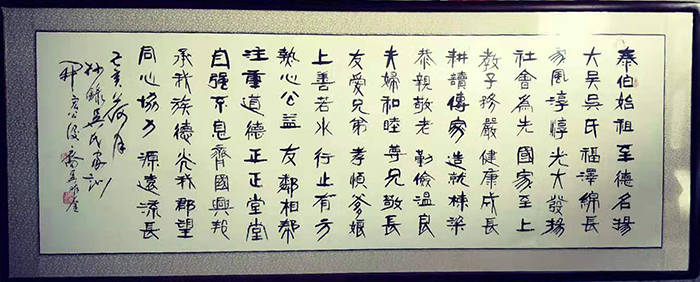 泰伯始祖 至德名揚
大吴吴氏 福澤綿長
家風淳惇 光大發扬
社會為先 國家至上
教子務嚴 健康成長
耕讀傳家 造就棟梁
恭親敬老 勤儉温良
夫婦和睦 尊兄敬長
友愛兄弟 孝順爹娘
上善若水 行止有方
熱心公益 友鄰相幫
注重道德 正正堂堂
自强不息 齊國興邦
承我族德 光我郡望
同心協力 源遠流長
己亥荷月
抄錄吴氏家訓